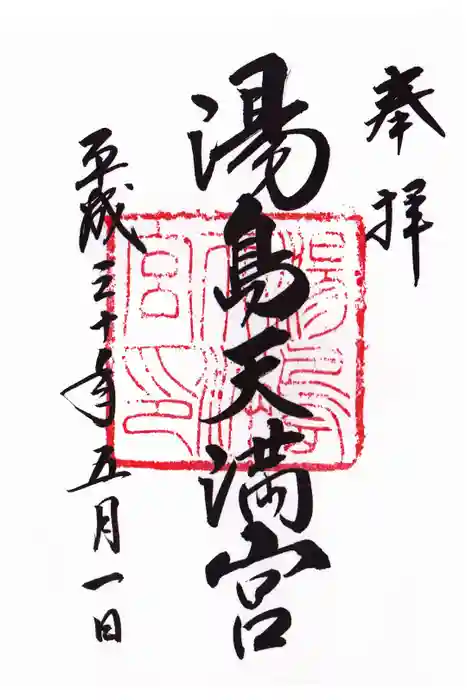 奉拝
湯島天満宮
平成三十年五月一日